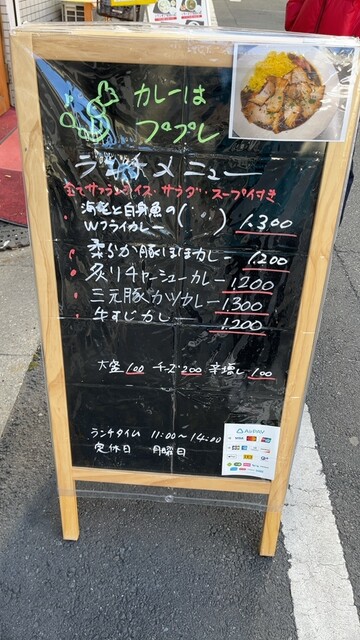 カレーは
ププレ
ランチメニュー
全てサフランライス・サラダ・スープ付き
海老と白身魚の
Wフライカレー 1,300
柔らか豚ほほカレー 1,200
炙りチャーシューカレー 1,200
三元豚カツカレー 1,300
牛すじカレー 1,200
大盛100 チーズ200 辛増し100
ランチタイム 11:00〜14:00
定休日 月曜日
AirPAY
VISA